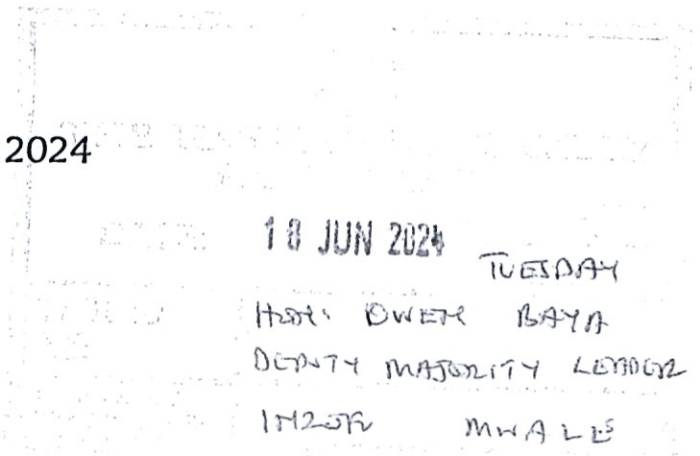 2024
18 JUN 2024
TUESDAY
HON. OWEN BAYA
DEPUTY MAJORITY LEADER
MWALE